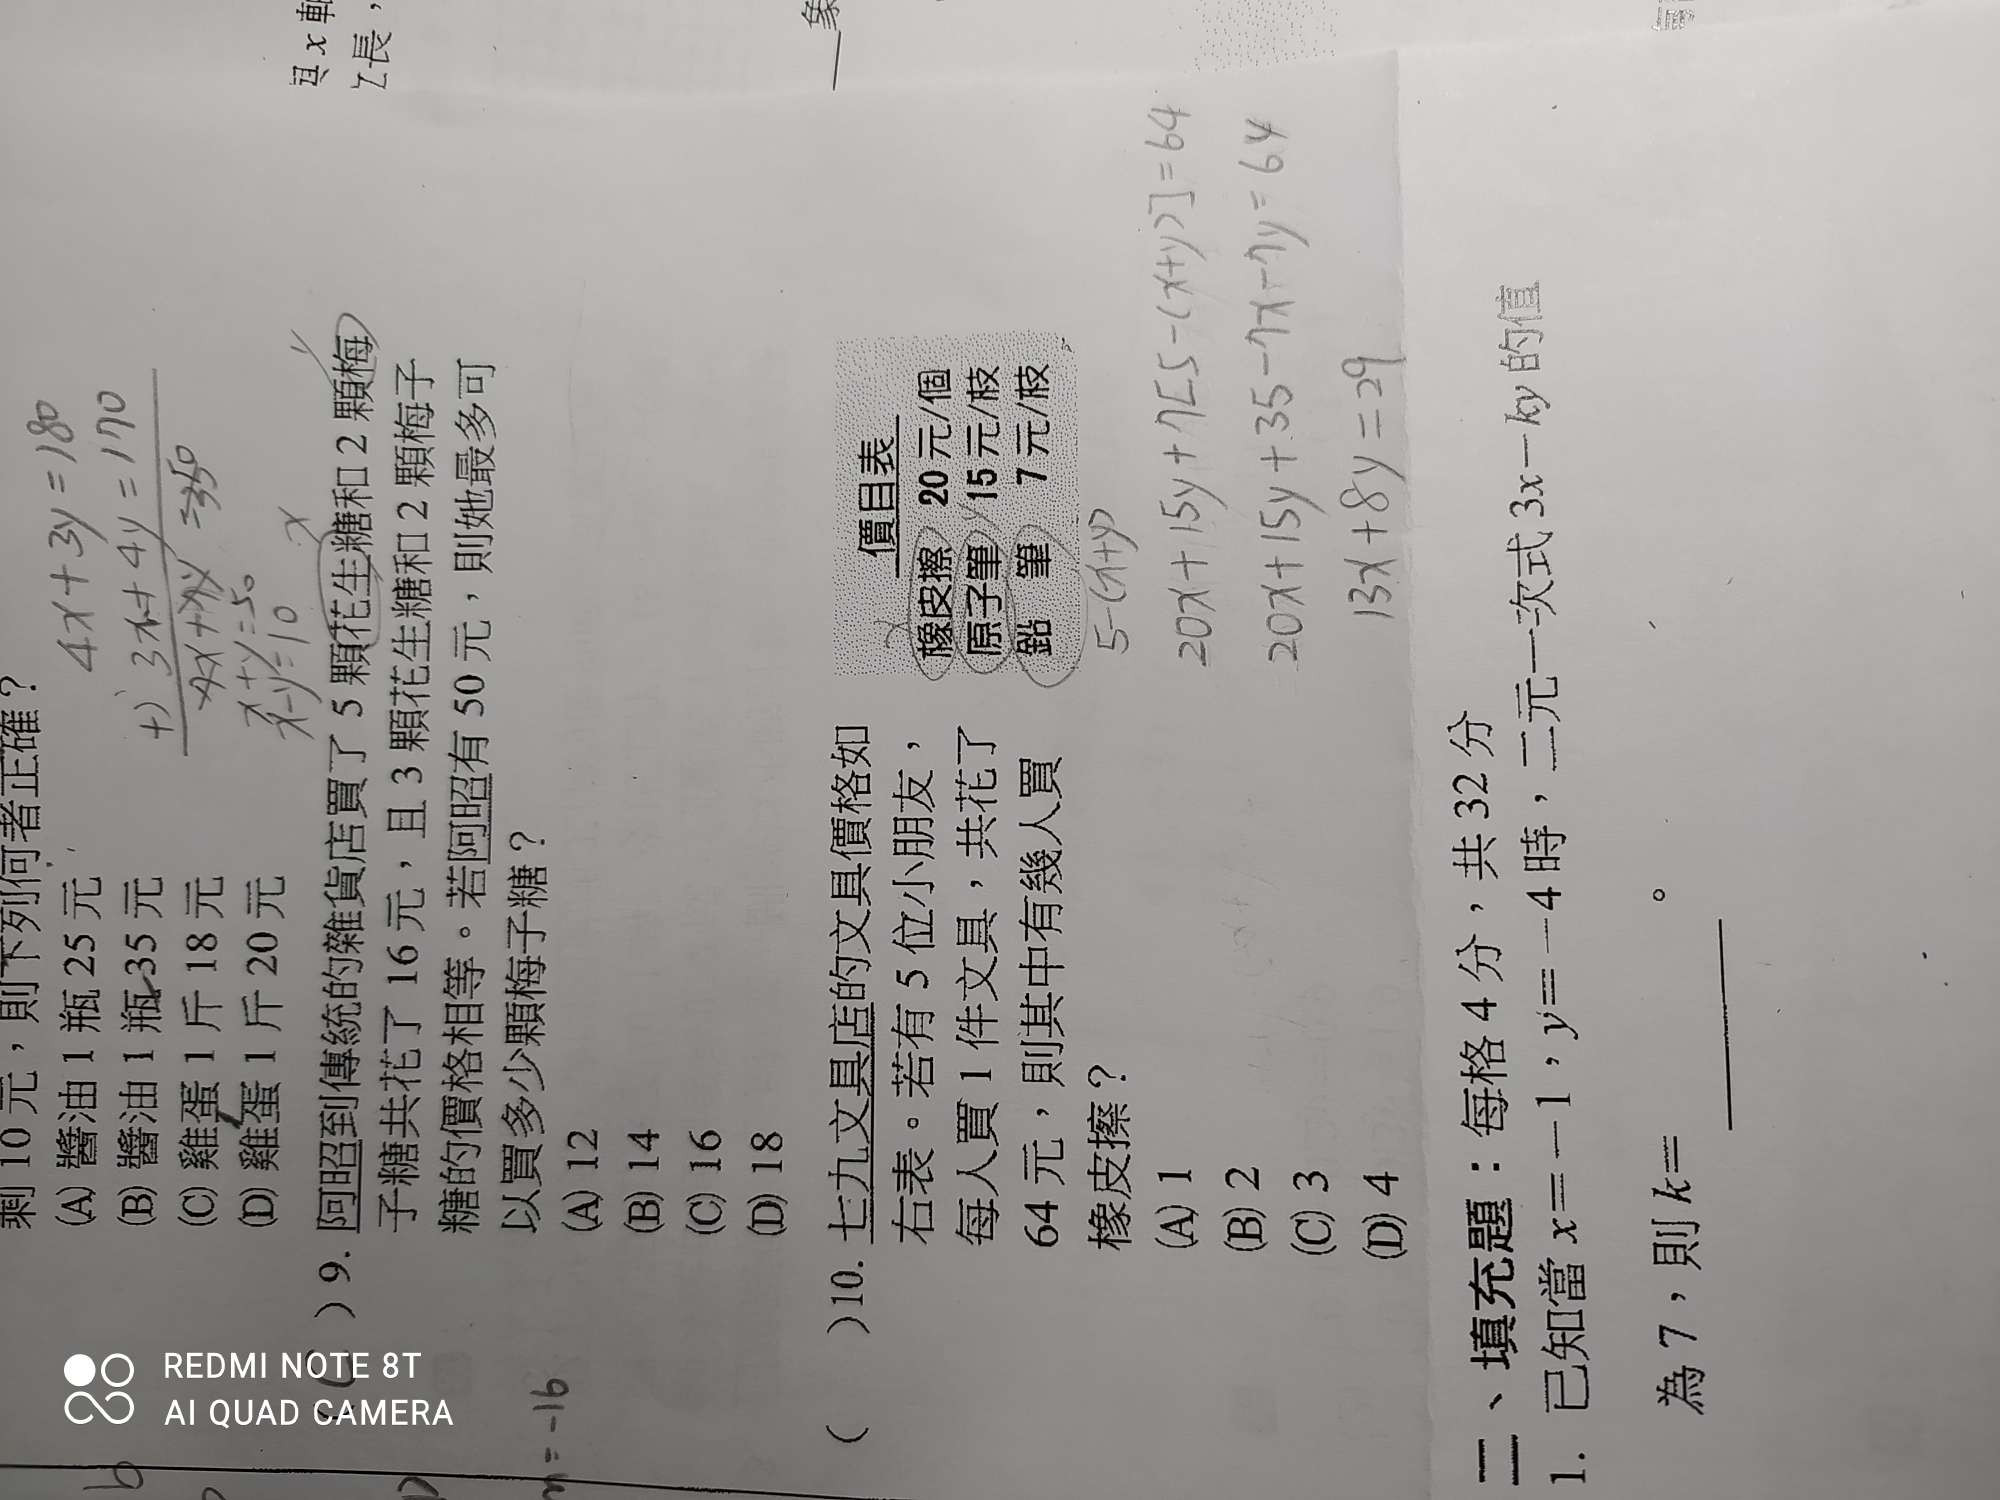 與 x 軸
剩 10 元,則下列何者正確?
(A) 醬油 1 瓶 25 元
(B) 醬油 1 瓶 35 元
(C) 雞蛋 1 斤 18 元
(D) 雞蛋 1 斤 20 元
4x+3y=180
+) 3x+4y=170
7x+7y=350
x+y=50
x-y=10
x
y
)9. 阿昭到傳統的雜貨店買了 5 顆花生糖和 2 顆梅
子糖共花了 16 元,且 3 顆花生糖和 2 顆梅子
糖的價格相等。若阿昭有 50 元,則她最多可
以買多少顆梅子糖?
(A) 12
(B) 14
(C) 16
(D) 18
=-16
( )10. 七九文具店的文具價格如
右表。若有 5 位小朋友,
每人買 1 件文具,共花了
64 元,則其中有幾人買
橡皮擦?
(A) 1
(B) 2
(C) 3
(D) 4
價目表
x
橡皮擦 20 元/個
原子筆 y 15 元/枝
鉛 筆 7 元/枝
5-(x+y)
20x+15y+7[5-(x+y)]=64
20x+15y+35-7x-7y=64
13x+8y=29
二、填充題:每格 4 分,共 32 分
1. 已知當 x=-1,y=-4 時,二元一次式 3x-ky 的值
為 7,則 k= 。
REDMI NOTE 8T
AI QUAD CAMERA